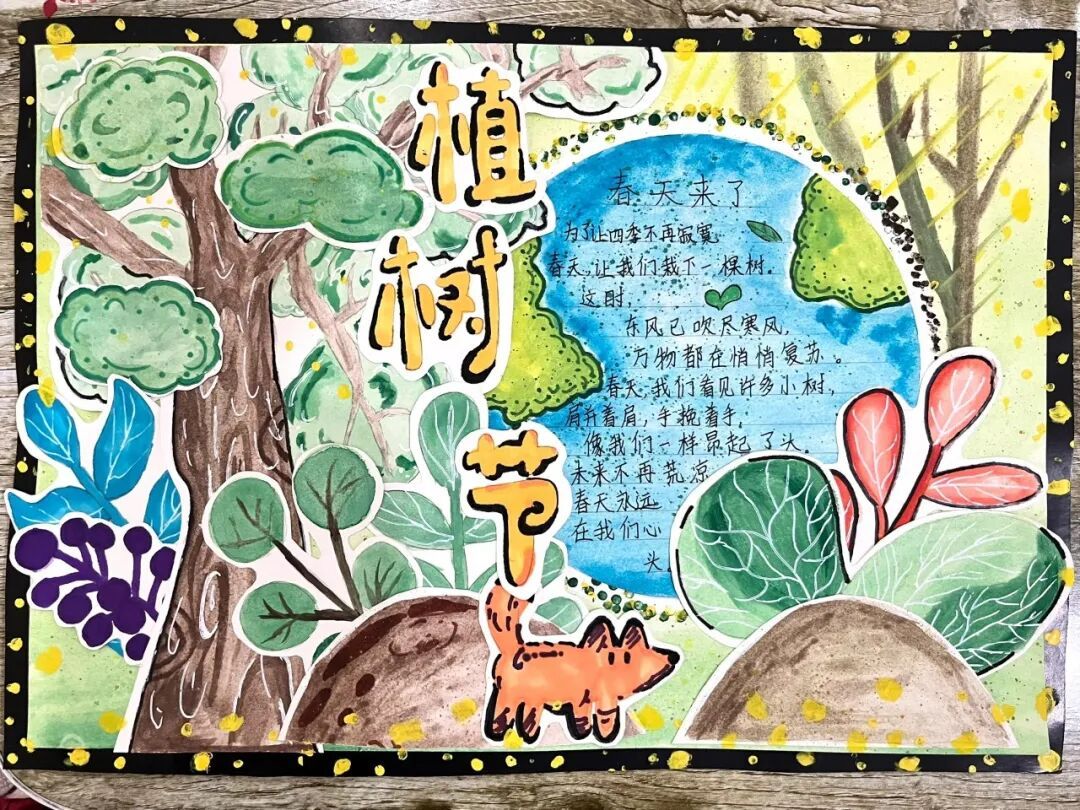 植树节
春天来了
为了让四季不再寂寞
春天,让我们栽下一棵树.
这时,
东风已吹尽寒风,
万物都在悄悄复苏。
春天,我们看见许多小树,
肩并着肩,手挽着手,
像我们一样昂起了头.
未来不再荒凉
春天永远
在我们心
头.